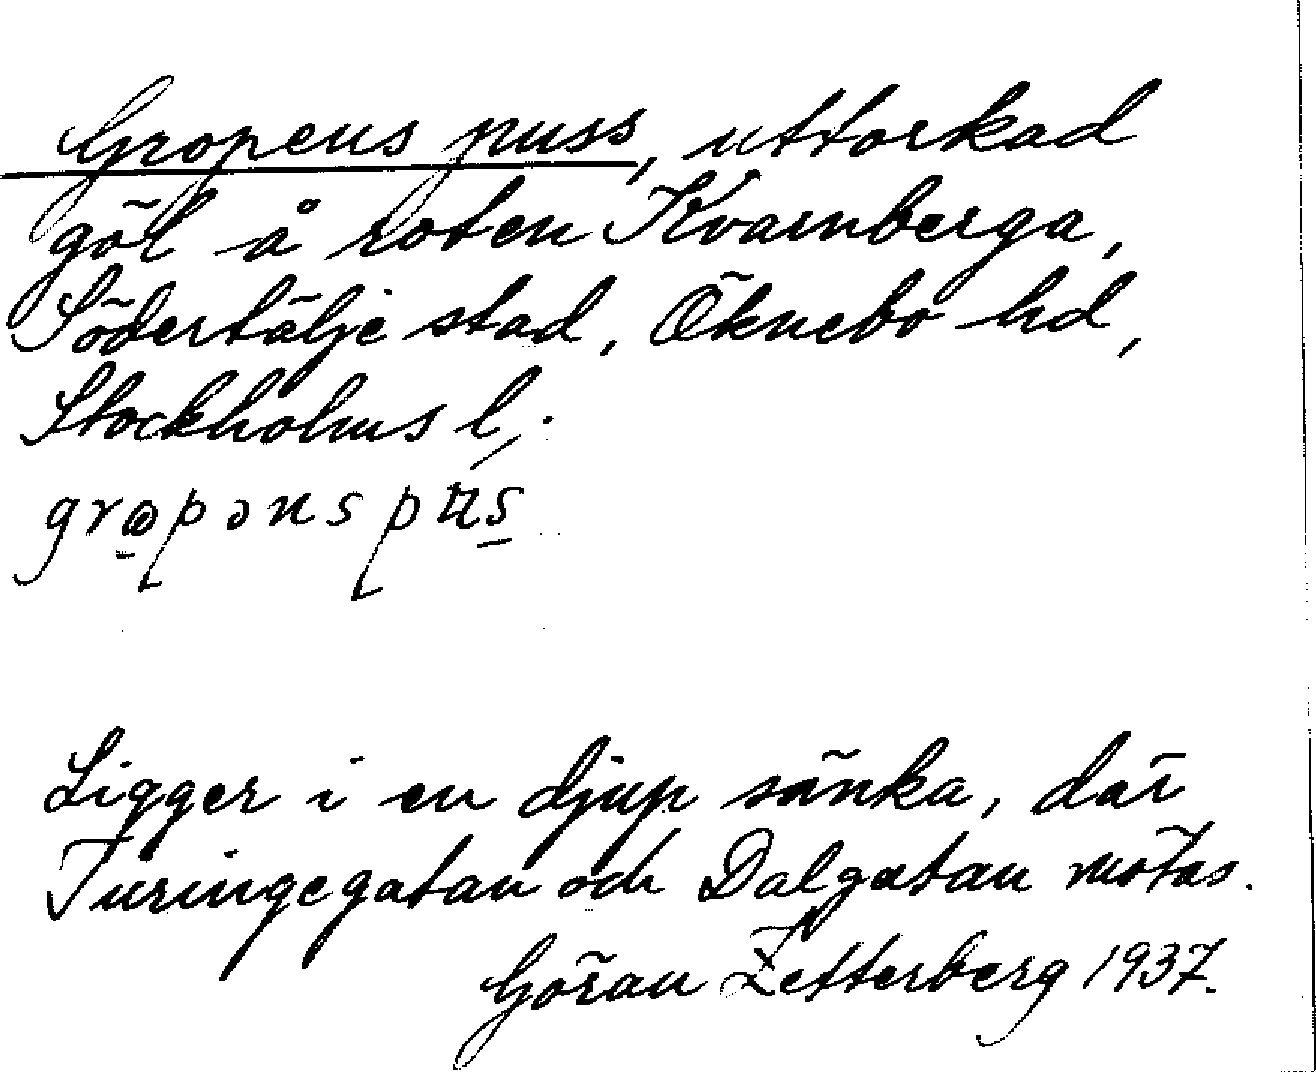 Gropens puss, uttorkad
göl å roten Kvarnberga,
Södertälje stad, Öknebo hd,
Stockholms l;.
Ligger i en djup sänka, där
Turingegatan och Dalgatan mötas.
Göran Zetterberg 1937.